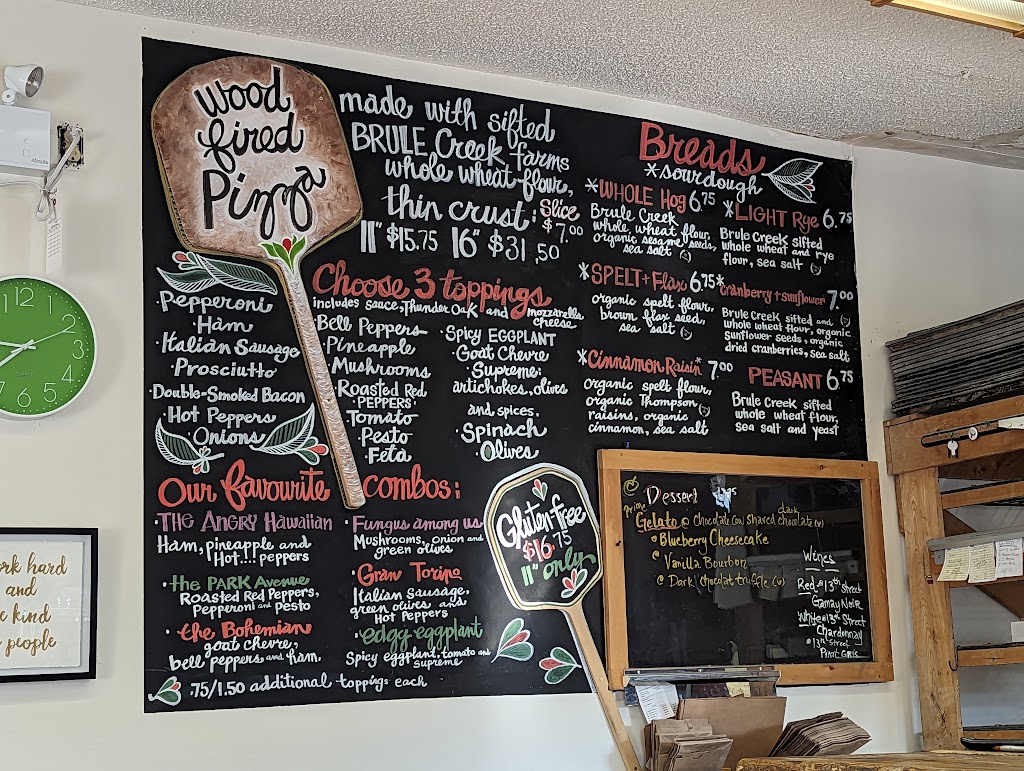 wood
fired
Pizza
made with sifted
BRULE Creek farms
whole wheat flour,
thin crust:
Slice
$7.00
11" $15.75 16" $31.50
Choose 3 toppings
includes sauce, Thunder Oak and mozzarella
cheese
Pepperoni
·Ham
·Italian Sausage
·Prosciutto
·Double-Smoked Bacon
·Hot Peppers
·Onions
·Bell Peppers
·Pineapple
·Mushrooms
·Roasted Red
PEPPERS
·Tomato
·Pesto
·Feta
·Spicy EGGPLANT
·Goat Chevre
·Supreme:
artichokes, olives
and spices.
·Spinach
·Olives
Our favourite combos:
·THE ANGRY Hawaiian
Ham, pineapple and
Hot.... peppers
·the PARK Avenue
Roasted Red Peppers,
Pepperoni and Pesto
·the Bohemian
goat chevre,
bell peppers and ham.
·Fungus among us
Mushrooms, onion and
green olives
·Gran Torino
Italian Sausage,
green olives and
Hot Peppers
·edgy eggplant
Spicy eggplant, tomato and
supreme
·.75/1.50 additional toppings each
Gluten-free
$16.75
11" only
Breads
*sourdough
*WHOLE Hog 6.75
Brule Creek
whole wheat flour,
organic sesame seeds,
sea salt
*LIGHT Rye 6.75
Brule Creek sifted
whole wheat and rye
flour, sea salt
*SPELT + Flax 6.75
organic spelt flour,
brown flax seed,
sea salt
*Cranberry + sunflower 7.00
Brule Creek sifted and
whole wheat flour, organic
sunflower seeds, organic
dried cranberries, sea salt
*Cinnamon Raisin* 7.00
organic spelt flour,
organic Thompson
raisins, organic
cinnamon, sea salt
PEASANT 6.75
Brule Creek sifted
whole wheat flour,
sea salt and yeast
Dessert
Gelato
dark
chocolate
Blueberry Cheesecake
Vanilla Bourbon
Dark chocolat truffle
Wines
Red @ 13th Street
Gamay Noir
White @ 13th Street
Chardonnay
13th Street
Pinot Gris
12
1
2
3
4
5
6
7
ork hard
and
e kind
people